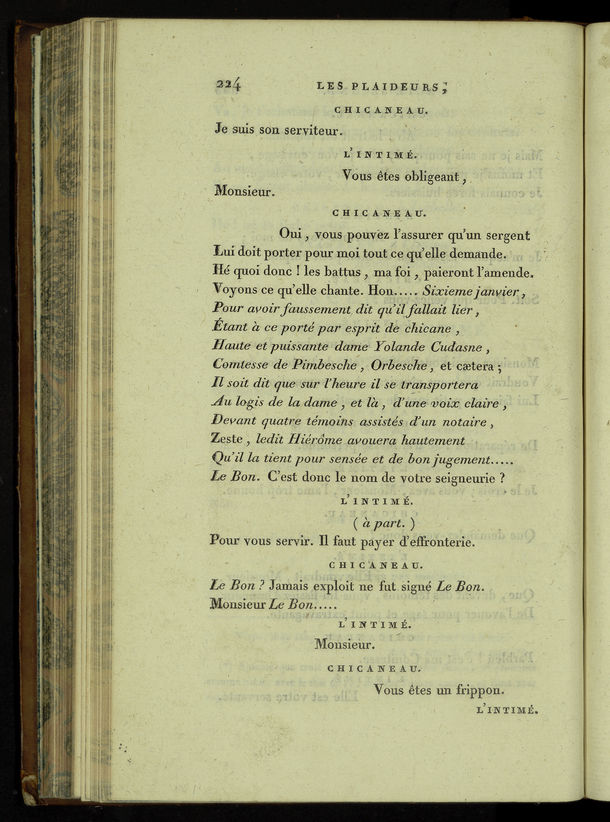 224 LES PLAIDEURS,
CHICANEAU.
Je suis son serviteur.
L'INTIMÉ.
Vous êtes obligeant,
Monsieur.
CHICANEAU.
Oui, vous pouvez l'assurer qu'un sergent
Lui doit porter pour moi tout ce qu'elle demande.
Hé quoi donc ! les battus, ma foi, paieront l'amende.
Voyons ce qu'elle chante. Hon..... Sixieme janvier,
Pour avoir faussement dit qu'il fallait lier,
Étant à ce porté par esprit de chicane,
Haute et puissante dame Yolande Cudasne,
Comtesse de Pimbesche, Orbesche, et cætera ;
Il soit dit que sur l'heure il se transportera
Au logis de la dame, et là, d'une voix claire,
Devant quatre témoins assistés d'un notaire,
Zeste, ledit Hiérôme avouera hautement
Qu'il la tient pour sensée et de bon jugement.....
Le Bon. C'est donc le nom de votre seigneurie ?
L'INTIMÉ.
( à part. )
Pour vous servir. Il faut payer d'effronterie.
CHICANEAU.
Le Bon ? Jamais exploit ne fut signé Le Bon.
Monsieur Le Bon.....
L'INTIMÉ.
Monsieur.
CHICANEAU.
Vous êtes un frippon.
L'INTIMÉ.